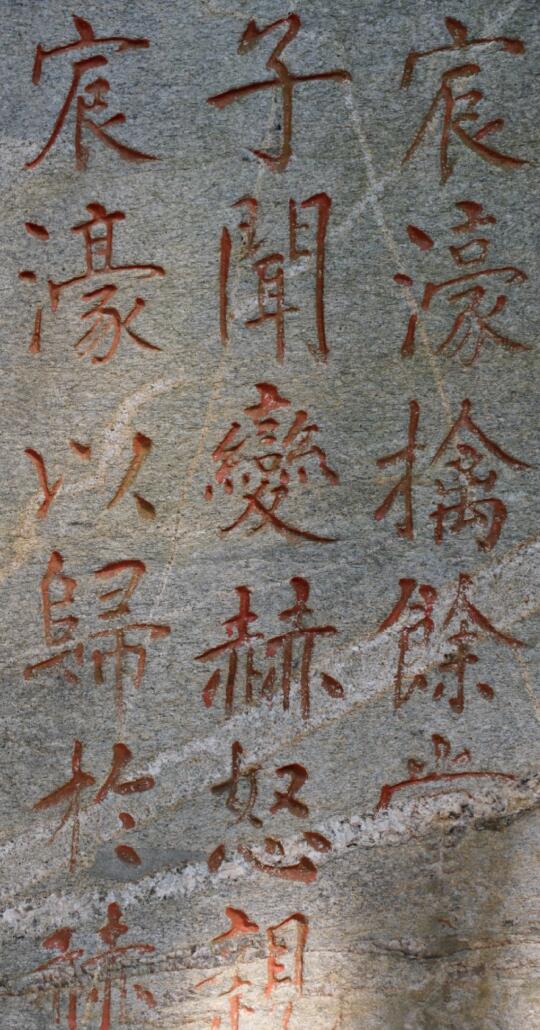 宸濠擒餘
子聞變赫怒親
宸濠以歸於赫